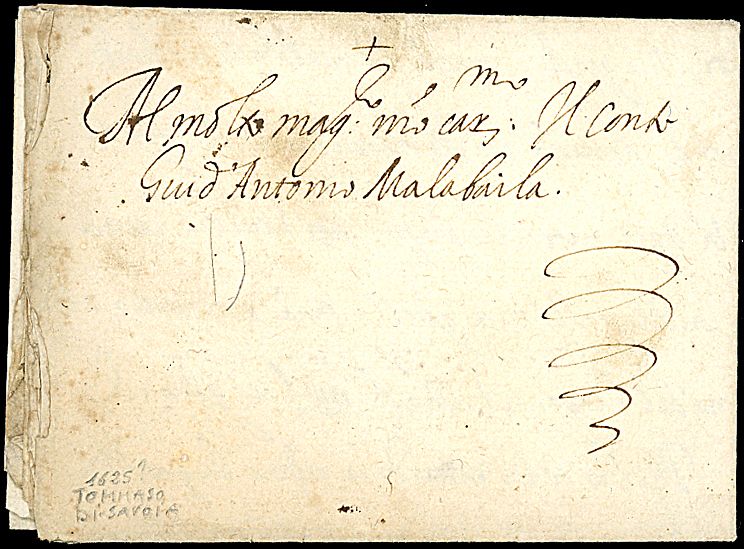 +
Al molto mag.co mio car.mo Il Conte
Guid'Antonio Malabaila.
1625?
TOMMASO
DI SAVOIA